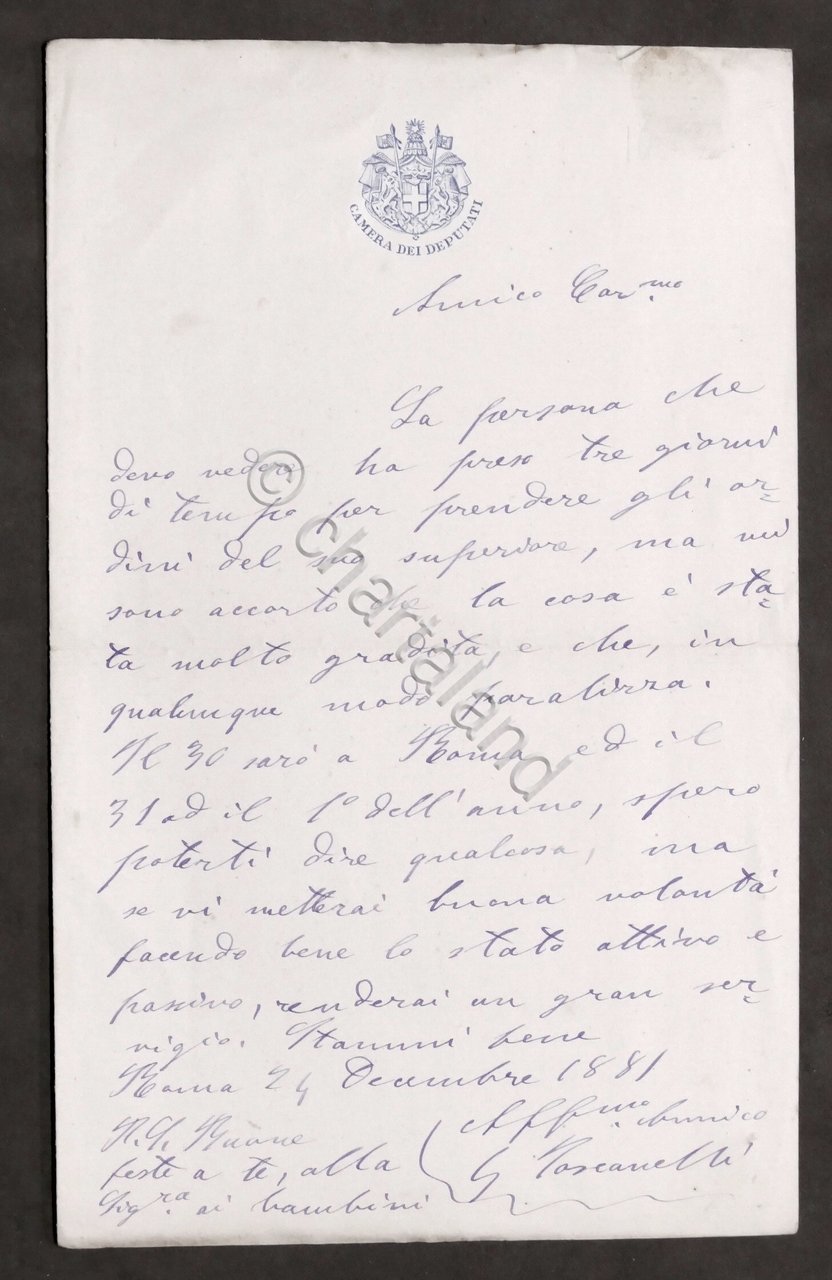 CAMERA DEI DEPUTATI
Amico Car.mo
La persona che
devo vedere ha preso tre giorni
di tempo per prendere gli or=
dini del suo superiore, ma mi
sono accorto che la cosa è sta=
ta molto gradita, e che, in
qualunque modo paralizza.
Il 30 sarò a Roma ed il
31 od il 1° dell'anno, spero
poterti dire qualcosa, ma
se vi metterai buona volontà
facendo bene lo stato attivo e
passivo, renderai un gran ser=
vigio. Stammi bene
Roma 24 Decembre 1881
P.S. Buone
feste a te, alla
Sig.ra ai bambini
Aff.mo Amico
G Toscanelli
© chartaland